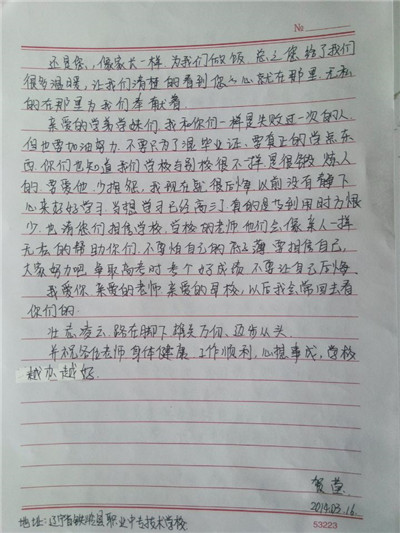 No
还是您,像家长一样为我们做饭 总之您给了我们
很多温暖,让我们清楚的看到您的心就在那里 无私
的在那里为我们奉献着.
亲爱的学弟学妹们,我和你们一样是失败过一次的人,
但也要加油努力,不要只为了混毕业证,要真正的学点东
西,你们也知道我们学校与别校很不一样是很锻炼人
的 要要他少抱怨,我现在就很后悔以前没有静下
心来好好学习 当想学习已经高三了 真的是书到用时方恨
少,也请你们相信学校,学校的老师他们会像亲人一样
无去的帮助你们,不要怕自己的底子薄 要相信自己,
大家努力吧,争取高考时考个好成绩,不要让自己后悔.
我爱你 亲爱的老师 亲爱的母校,以后我会常回去看
你们的.
壮志凌云,踩在脚下 雄关万仞、迈步从头.
并祝各位老师身体健康 工作顺利,心想事成,学校
越办越好.
贺莹
2014.03.16.
地址:辽宁省铁岭县职业中专技术学校
53223